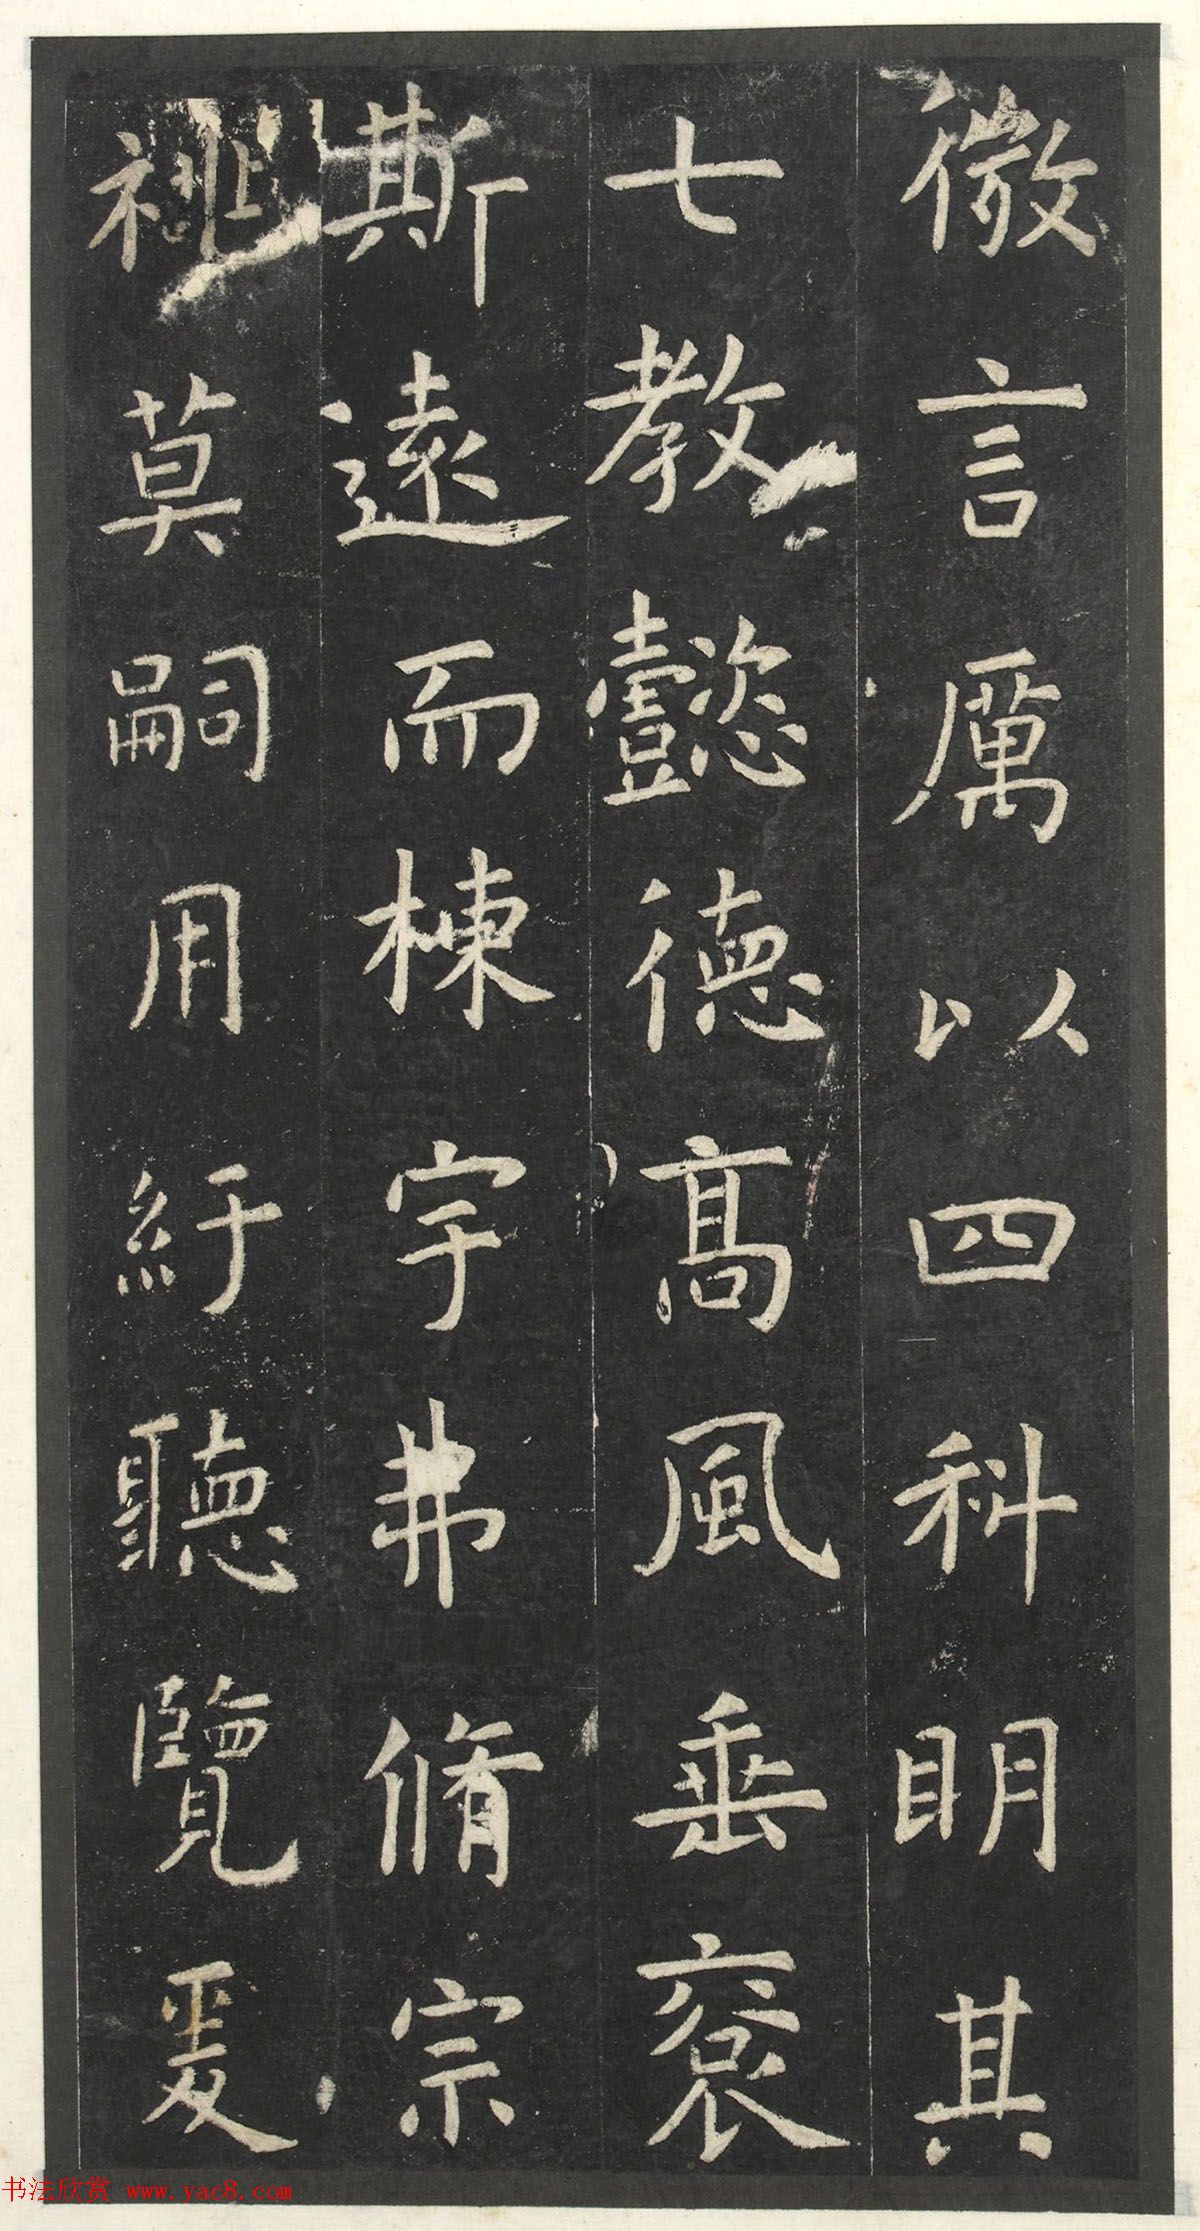 微言厲以四科明其
七教懿德高風垂裕
斯遠而棟宇弗脩宗
祧莫嗣用紆聽覽爰
书法欣赏 www.yac8.com